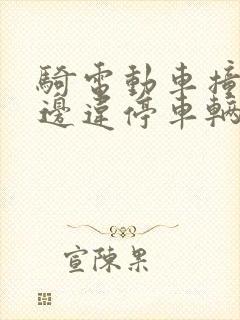 騎電動車撞
邊違停車輛
宣陳果